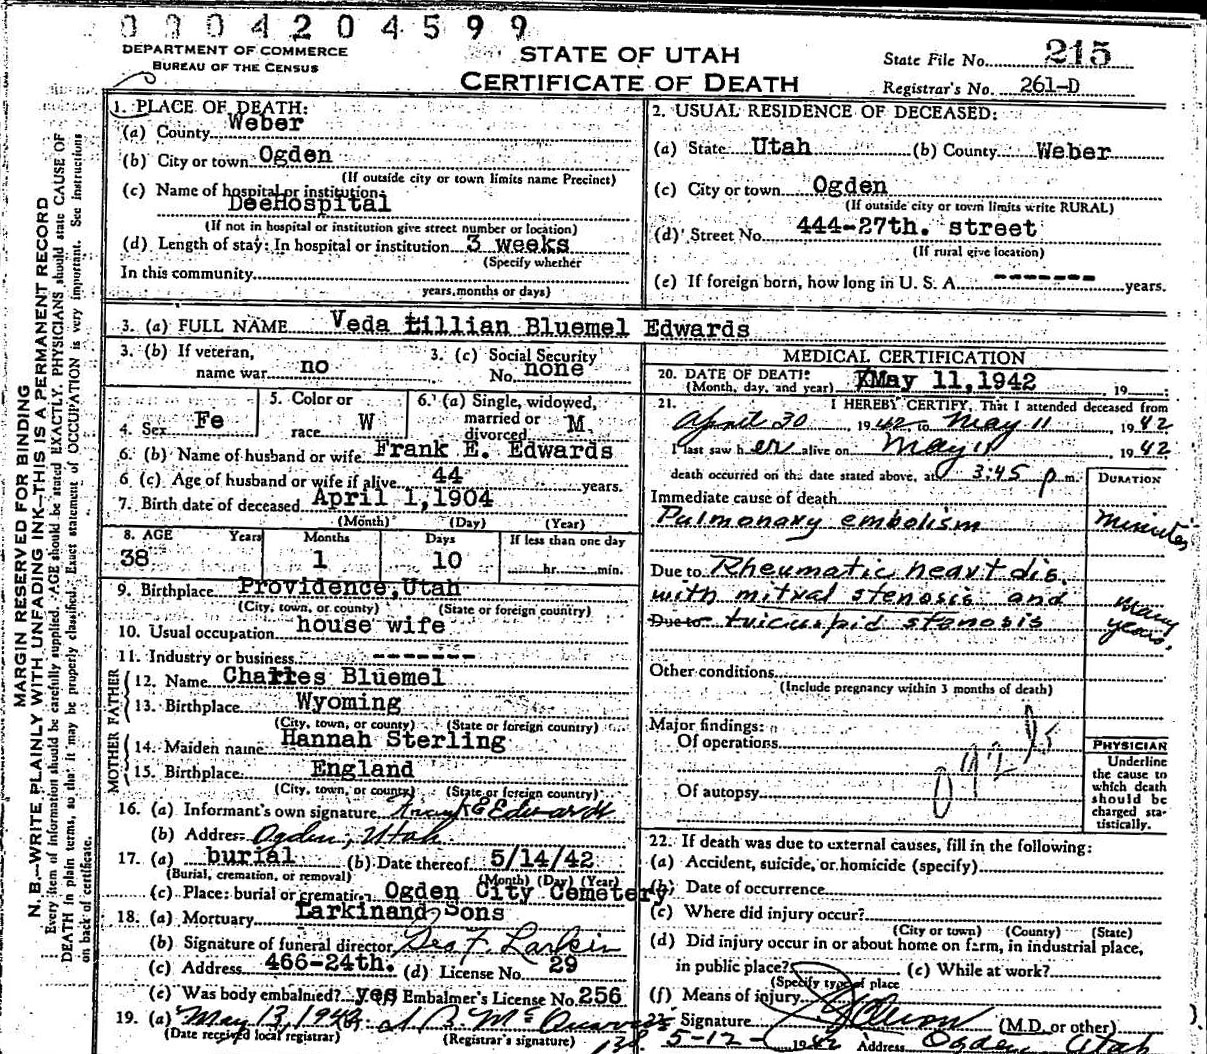 0 3 0 4 2 0 4 5 9 9
DEPARTMENT OF COMMERCE
BUREAU OF THE CENSUS
STATE OF UTAH
CERTIFICATE OF DEATH
State File No. 215
Registrar's No. 261-D
MARGIN RESERVED FOR BINDING
N. B.—WRITE PLAINLY WITH UNFADING INK—THIS IS A PERMANENT RECORD
Every item of information should be carefully supplied. AGE should be stated EXACTLY. PHYSICIANS should state CAUSE OF
DEATH in plain terms, so that it may be properly classified. Exact statement of OCCUPATION is very important. See instructions
on back of certificate.
1. PLACE OF DEATH:
(a) County Weber
(b) City or town Ogden
(If outside city or town limits name Precinct)
(c) Name of hospital or institution:
DeeHospital
(If not in hospital or institution give street number or location)
(d) Length of stay: In hospital or institution 3 weeks
(Specify whether
In this community
years, months or days)
2. USUAL RESIDENCE OF DECEASED:
(a) State Utah (b) County Weber
(c) City or town Ogden
(If outside city or town limits write RURAL)
(d) Street No. 444-27th. street
(If rural give location)
(e) If foreign born, how long in U. S. A. ------- years.
3. (a) FULL NAME Veda Lillian Bluemel Edwards
3. (b) If veteran,
name war no
3. (c) Social Security
No. none
4. Sex Fe
5. Color or
race W
6. (a) Single, widowed,
married or
divorced M.
6. (b) Name of husband or wife Frank E. Edwards
6 (c) Age of husband or wife if alive 44 years.
7. Birth date of deceased April 1,1904
(Month) (Day) (Year)
8. AGE Years Months Days If less than one day
38 1 10 hr. min.
9. Birthplace Providence,Utah
(City, town, or county) (State or foreign country)
10. Usual occupation house wife
11. Industry or business -------
FATHER
12. Name Charles Bluemel
13. Birthplace Wyoming
(City, town, or county) (State or foreign country)
MOTHER
14. Maiden name Hannah Sterling
15. Birthplace England
(City, town, or county) (State or foreign country)
16. (a) Informant's own signature Frank E Edwards
(b) Address Ogden, Utah
17. (a) burial (b) Date thereof 5/14/42
(Burial, cremation, or removal) (Month) (Day) (Year)
(c) Place: burial or cremation Ogden City Cemetery
18. (a) Mortuary Larkinand Sons
(b) Signature of funeral director Geo F. Larkin
(c) Address 466-24th. (d) License No. 29
(e) Was body embalmed? yes Embalmer's License No. 256
19. (a) May 13, 1942
(Date received local registrar) (Registrar's signature)
MEDICAL CERTIFICATION
20. DATE OF DEATH:
(Month, day, and year) May 11,1942 19
21. I HEREBY CERTIFY, That I attended deceased from
April 30, 1942 to May 11, 1942
I last saw her alive on May 11 1942
death occurred on the date stated above, at 3:45 p m.
DURATION
Immediate cause of death
Pulmonary embolism minutes
Due to Rheumatic heart dis.
with mitral stenosis and many
Due to tricuspid stenosis years.
Other conditions
(Include pregnancy within 3 months of death)
Major findings:
Of operations
Of autopsy
PHYSICIAN
Underline
the cause to
which death
should be
charged sta-
tistically.
22. If death was due to external causes, fill in the following:
(a) Accident, suicide, or homicide (specify)
(b) Date of occurrence
(c) Where did injury occur?
(City or town) (County) (State)
(d) Did injury occur in or about home on farm, in industrial place,
in public place? (e) While at work?
(Specify type of place
(f) Means of injury
Signature (M.D. or other)
5-12- 1942 Address Ogden Utah